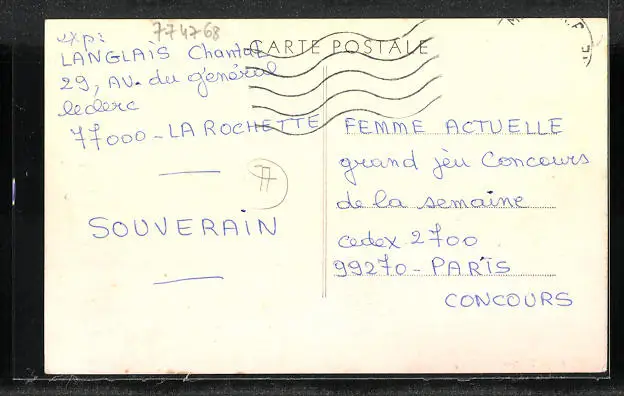 774768
exp:
LANGLAIS Chantal
29, AV. du général
leclerc
77000 - LA ROCHETTE
77
SOUVERAIN
CARTE POSTALE
FEMME ACTUELLE
grand jeu Concours
de la semaine
cedex 2700
99270 - PARIS
CONCOURS